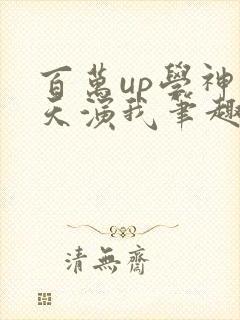 百萬up學神
天演我筆趣
清無齋